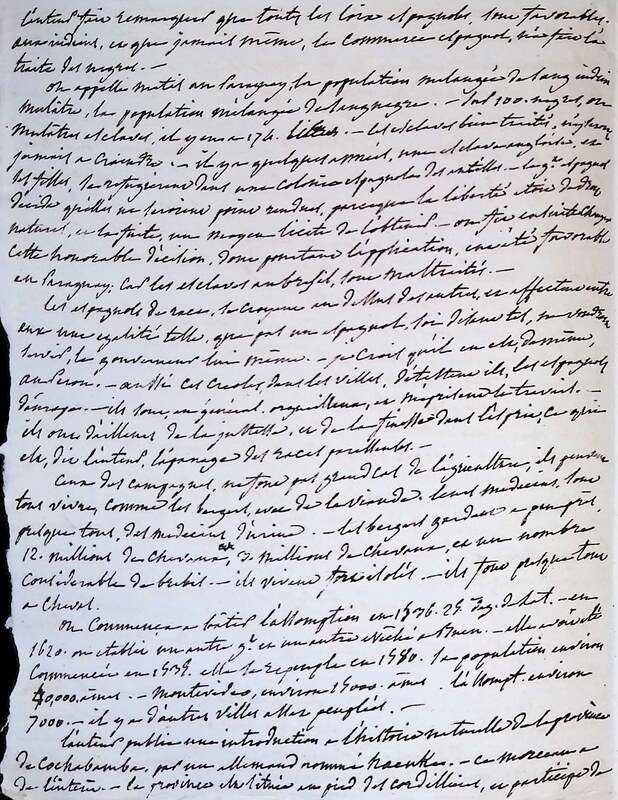 l'auteur fait remarquer que toutes les loix espagnoles, sont favorables
aux indiens, et que jamais même, le commerce espagnol, n'a fait la
traite des negres. —
On appelle metis au Paraguay, la population melangée de sang indien
mulâtre, la population mélangée de sang negre. — Sur 100. negres, ou
mulatres esclaves, il y en a 174. libres. — les esclaves bien traités, n'y
jamais a craindre. — il y a quelques années, une esclave anglaise, et
ses filles, se refugierent dans une colonie espagnole des antilles. — le g.t espagnol
décida qu'elles ne seroient point rendues, parceque la liberté etoit de droit
naturel, et la fuite, un moyen licite de l'obtenir. — on fit ensuite
cette honorable décision, dont pourtant l'application, eut été favorable
au Paraguay; car les esclaves au bresil, sont maltraités. —
les espagnols de race, se croyent au dessus des autres, et affectent entre
eux une egalité telle, que pas un espagnol, soi disant tel, ne voudroit
servir, le gouverneur lui même. — je crois qu'il en est, de même,
au Perou. — aussi ces creoles, dans les villes, détestent ils, les espagnols
d'europe. — ils sont, en général, orgueilleux, et méprisent le travail. —
ils ont d'ailleurs de la justesse, et de la finesse dans l'esprit, ce qui
est, dit l'auteur, l'apanage des races
Ceux des campagnes, ne font pas grand cas de l'agriculture, ils peuvent
tous vivre, comme les bergers, avec de la viande. leurs medecins, sont
presque tous, des medecins d'urine. — les bergers gardent a peu près
12. millions de 3. millions de chevaux, et un nombre
considerable de brebis. — ils vivent fort isolés. — ils sont presque tous
a cheval.
On commença a batir l'assomption en 1536. 25. deg. de lat. — en
1620. on etablit un autre g.t et un autre evéché a Buen. — elle avoit été
commencée en 1535. elle se repeupla en 1580. sa population environ
40,000 ames. — montevideo, environ 15000. ames l'assompt. environ
7000. — il y a d'autres villes assez peuplées. —
l'auteur publie une introduction a l'histoire naturelle de la province
de Cochabamba, par un allemand nommé haenke. — ce morceau a
de l'intérêt. — la province est située au pied des cordillieres, et participe de